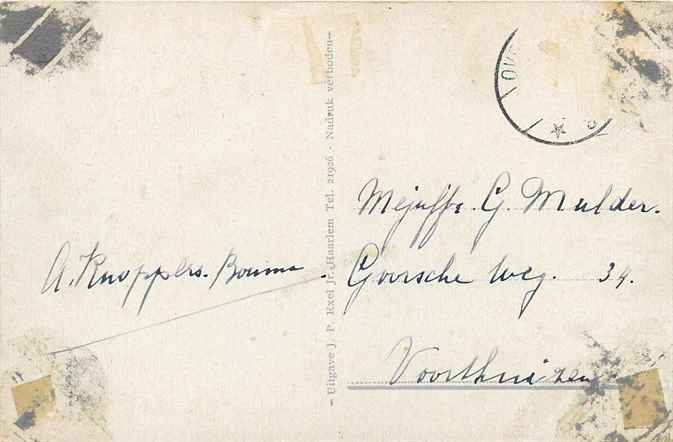 A. Knoppers-Bouma
— Uitgave J. P. Exel Jr. Haarlem Tel. 21926. - Nadruk verboden —
Mejuffr. G. Mulder.
Goorsche weg. 34.
Voorthuizen